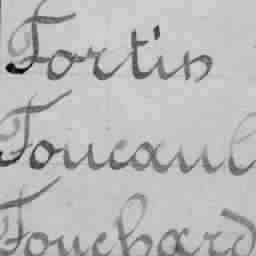 Fortin
Foucaul
Fouchard